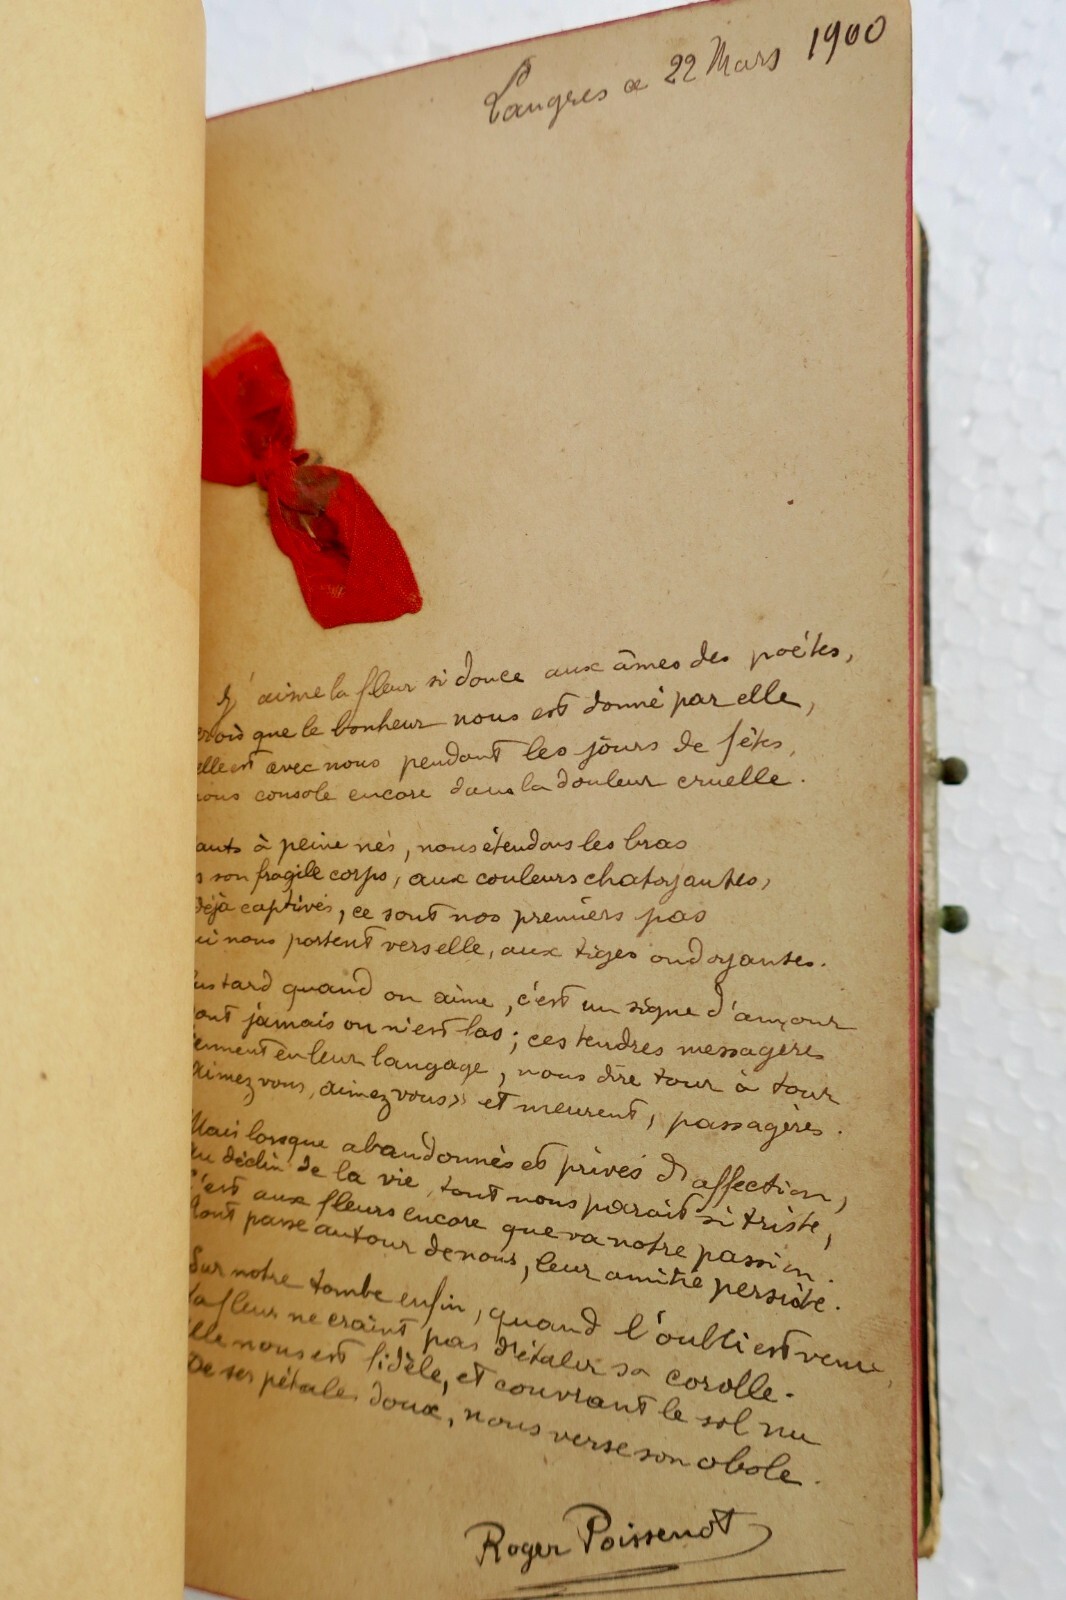 Langres le 22 Mars 1900
J'aime la fleur si douce aux âmes des poètes,
crois que le bonheur nous est donné par elle,
elle est avec nous pendant les jours de fêtes,
nous console encore dans la douleur cruelle.
ants à peine nés, nous étendons les bras
s son fragile corps, aux couleurs chatoyantes,
déjà captivés, ce sont nos premiers pas
ui nous portent vers elle, aux tiges ondoyantes.
lus tard quand on aime, c'est un signe d'amour
ont jamais on n'est las ; ces tendres messagères
iennent en leur langage, nous dire tour à tour
aimez vous, aimez vous » et meurent, passagères.
Mais lorsque abandonnés et privés d'affection,
Au déclin de la vie, tout nous parait si triste,
C'est aux fleurs encore que va notre passion.
Tout passe autour de nous, leur amitié persiste.
Sur notre tombe enfin, quand l'oubli est venu,
La fleur ne craint pas d'étaler sa corolle.
Elle nous est fidèle, et couvrant le sol nu
De ses pétales doux, nous verse son obole.
Roger Poissenot